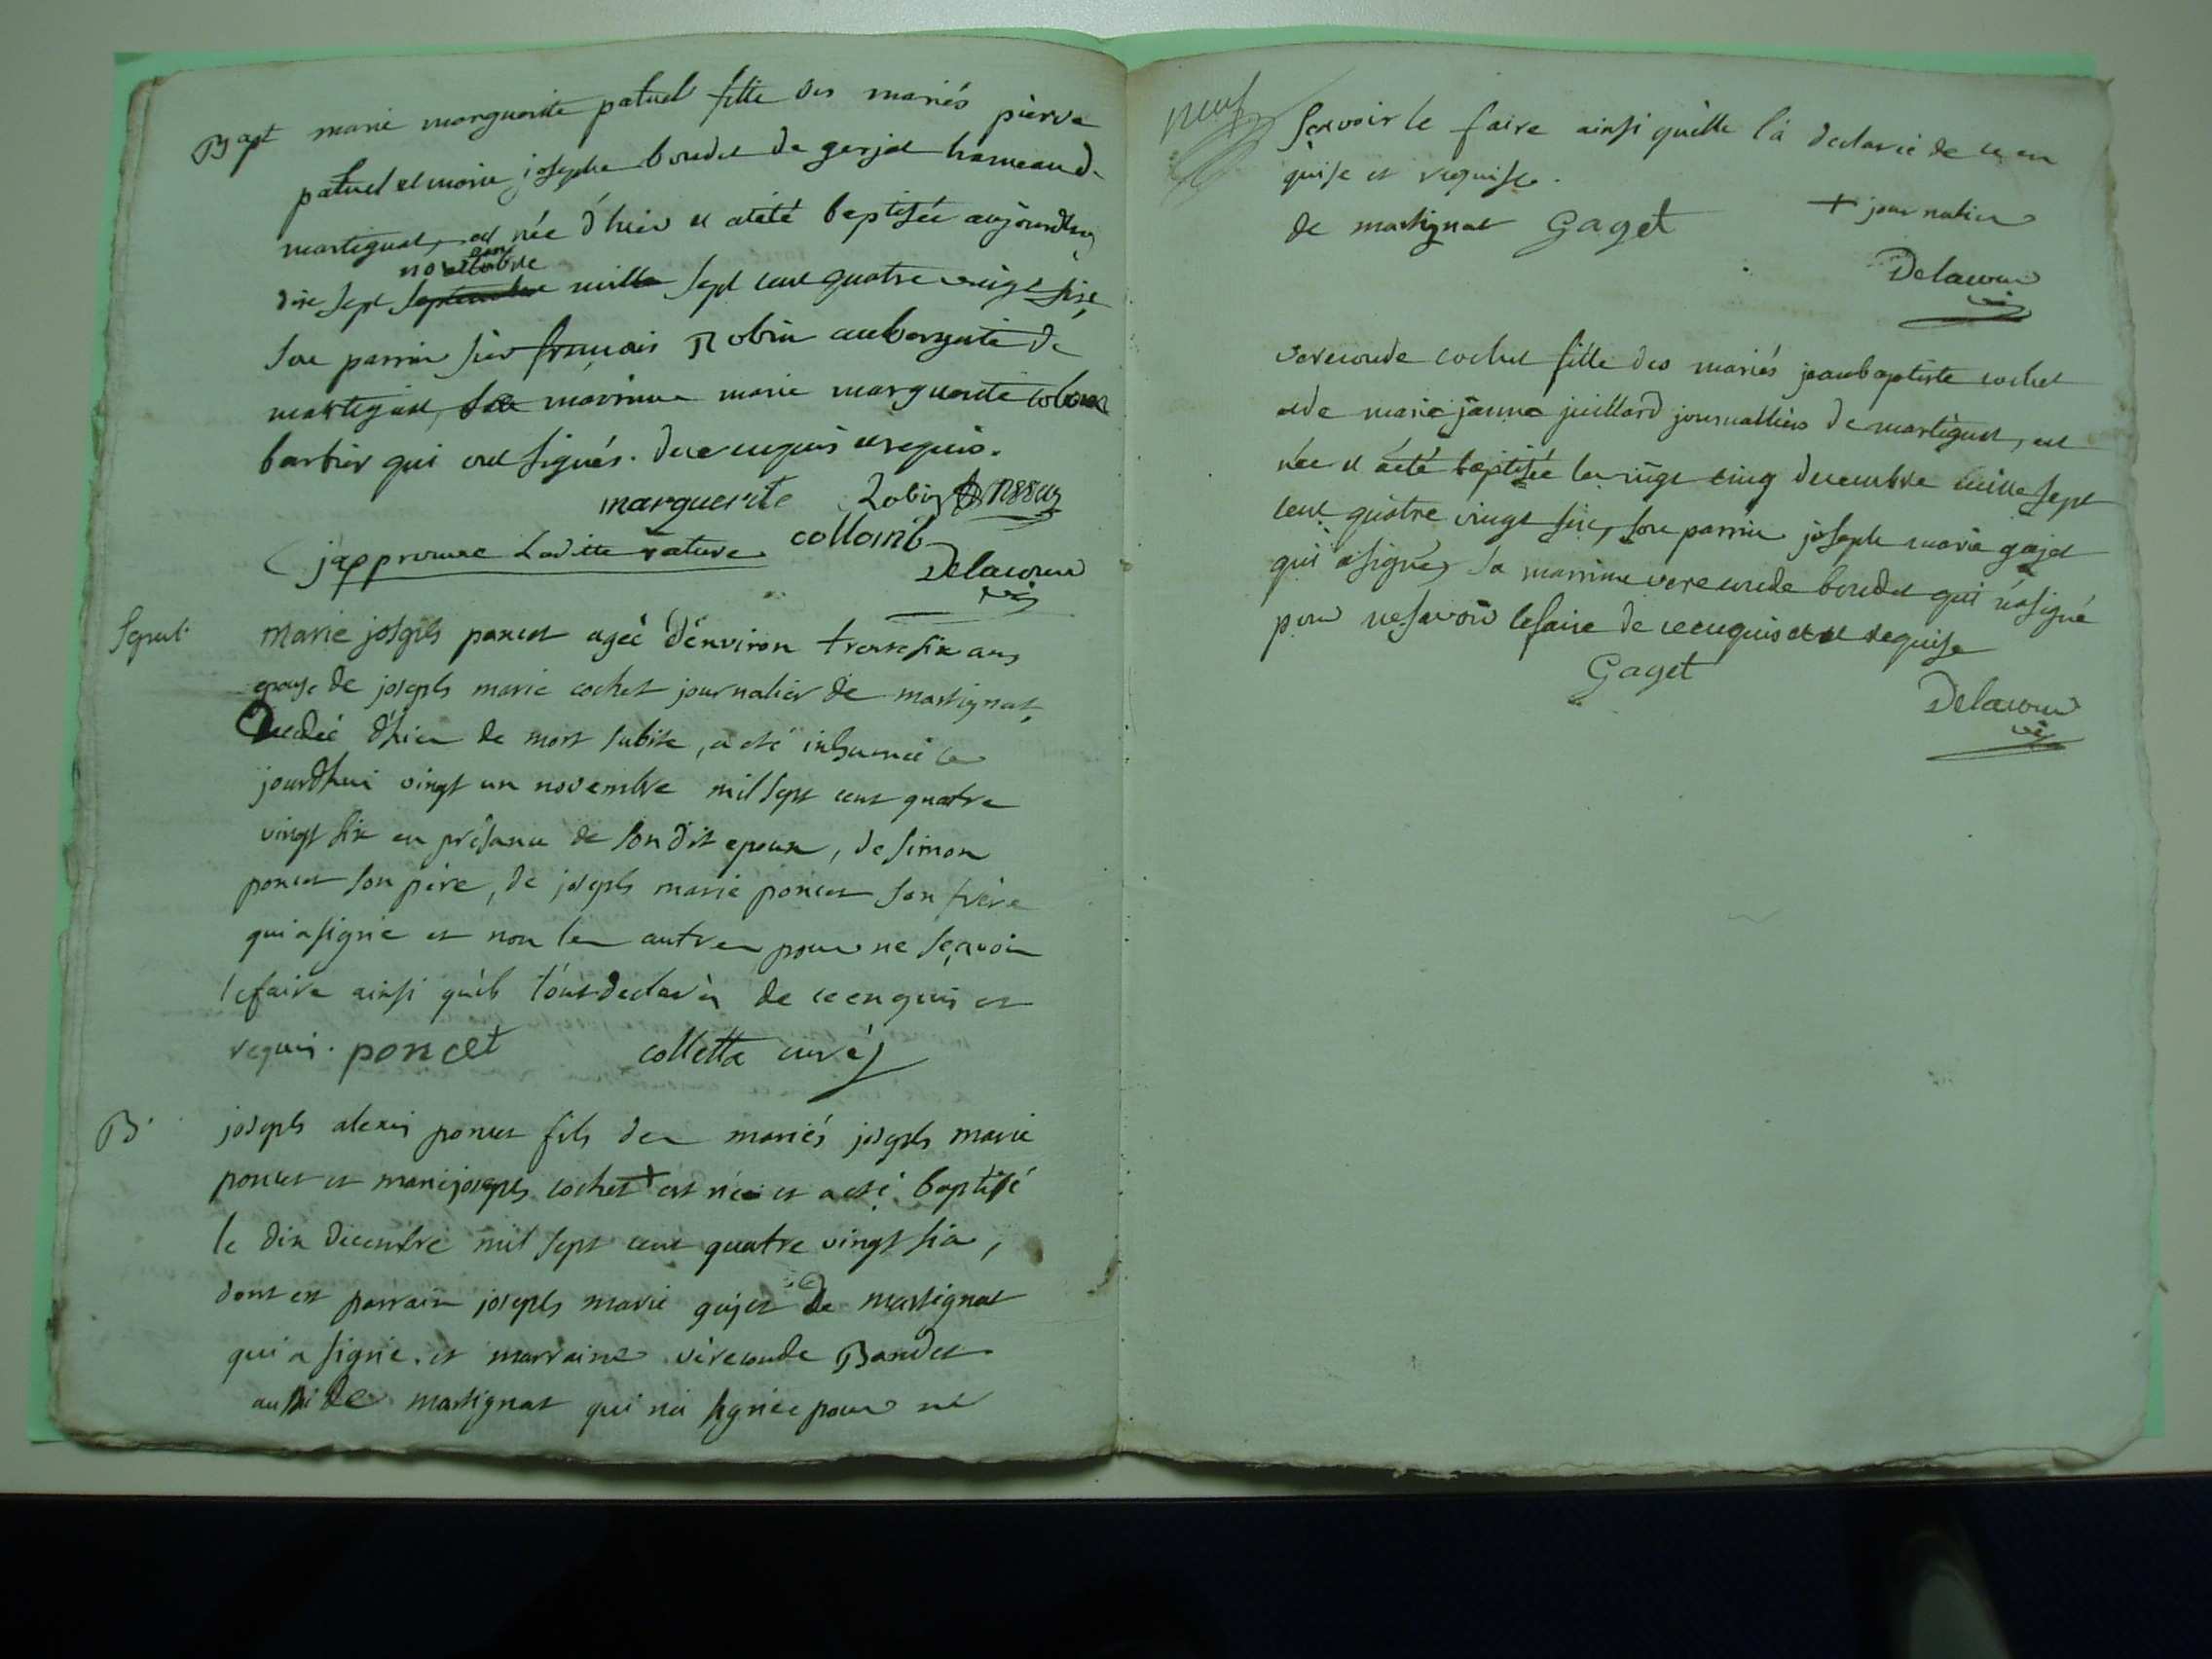 Bapt marie marguerite patuel fille des mariés pierre
patuel et marie josephe boudet de gerjat hameau de
martignat, est née d'hier et a été baptisée aujourdhuy
novembre
dixe sept septembre mille sept cent quatre vingt sixe,
son parrin sier françois Robin aubergiste de
martignat, sa marrinne marie marguerite
barbier qui ont signés. de ce enquis et requis.
marguerite Robin
collomb
j'approuve ladite rature
Delacour
vic
Sepult. marie joseph poncet agée d'environ trente six ans
epouse de joseph marie cochet journalier de martignat,
decedée d'hier de mort subite, a été inhumée ce
jourdhui vingt un novembre mil sept cent quatre
vingt six en présance de son dit epoux, de simon
poncet son père, de joseph marie poncet son frère
qui a signé et non les autres pour ne sçavoir
le faire ainsi qu'ils l'ont declarés de ce enquis et
requis. poncet collette curé
B. joseph alexis poncet fils des mariés joseph marie
poncet et marie joseph cochet + est née et a été baptisé
le dix decembre mil sept cent quatre vingt six,
dont est parrain joseph marie gajet de martignat
qui a signé. et marraine vérecunde Baudet
aussi de martignat qui n'a signée pour ne
neuf
sçavoir le faire ainsi qu'elle l'a declarée de ce en
quise et requise.
de martignat Gaget + journalier
Delacour
vic
verecunde cochet fille des mariés jean baptiste cochet
et de marie jeanne juillard journalliers de martignat, est
née et a été baptisée le vingt cinq decembre mille sept
cent quatre vingt six, son parrin joseph marie gajet
qui a signé, sa marrinne verecunde boudet qui n'a signé
pour ne savoir le faire de ce enquis et requise
Gaget
Delacour
vic